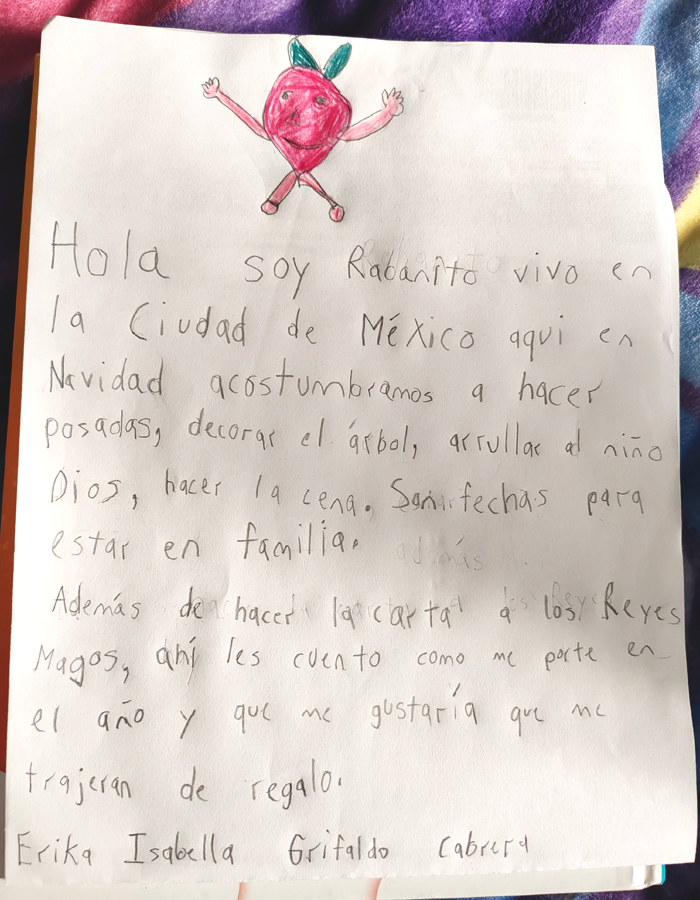 Hola soy Rabanito vivo en
la Ciudad de México aqui en
Navidad acostumbramos a hacer
posadas, decorar el árbol, arrullar al niño
Dios, hacer la cena. Son fechas para
estar en familia.
Además de hacer la carta a los Reyes
Magos, ahí les cuento como me porte en
el año y que me gustaría que me
trajeran de regalo.
Erika Isabella Grifaldo Cabrera